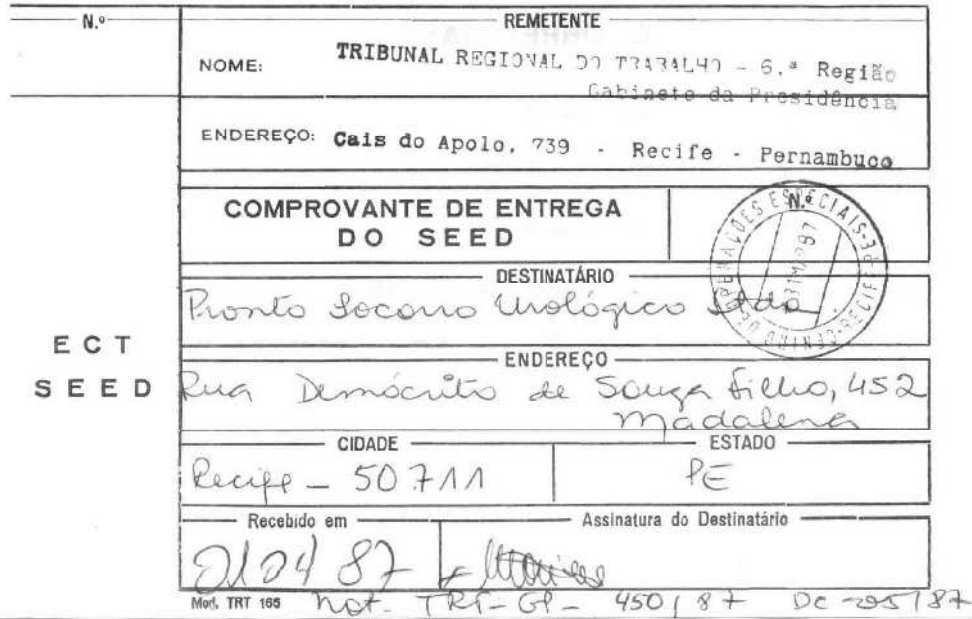 N.º
REMETENTE
NOME: TRIBUNAL REGIONAL DO TRABALHO - 6.ª Região
Gabinete da Presidência
ENDEREÇO: Cais do Apolo, 739 - Recife - Pernambuco
COMPROVANTE DE ENTREGA
DO SEED
N.º
DESTINATÁRIO
Pronto Socorro Urológico Ltda
ECT
SEED
ENDEREÇO
Rua Demócrito de Souza Filho, 452
Madalena
CIDADE
ESTADO
Recife - 50711
PE
Recebido em
Assinatura do Destinatário
010487
Mod. TRT 165
Not- TRT-GP- 450/87 DC